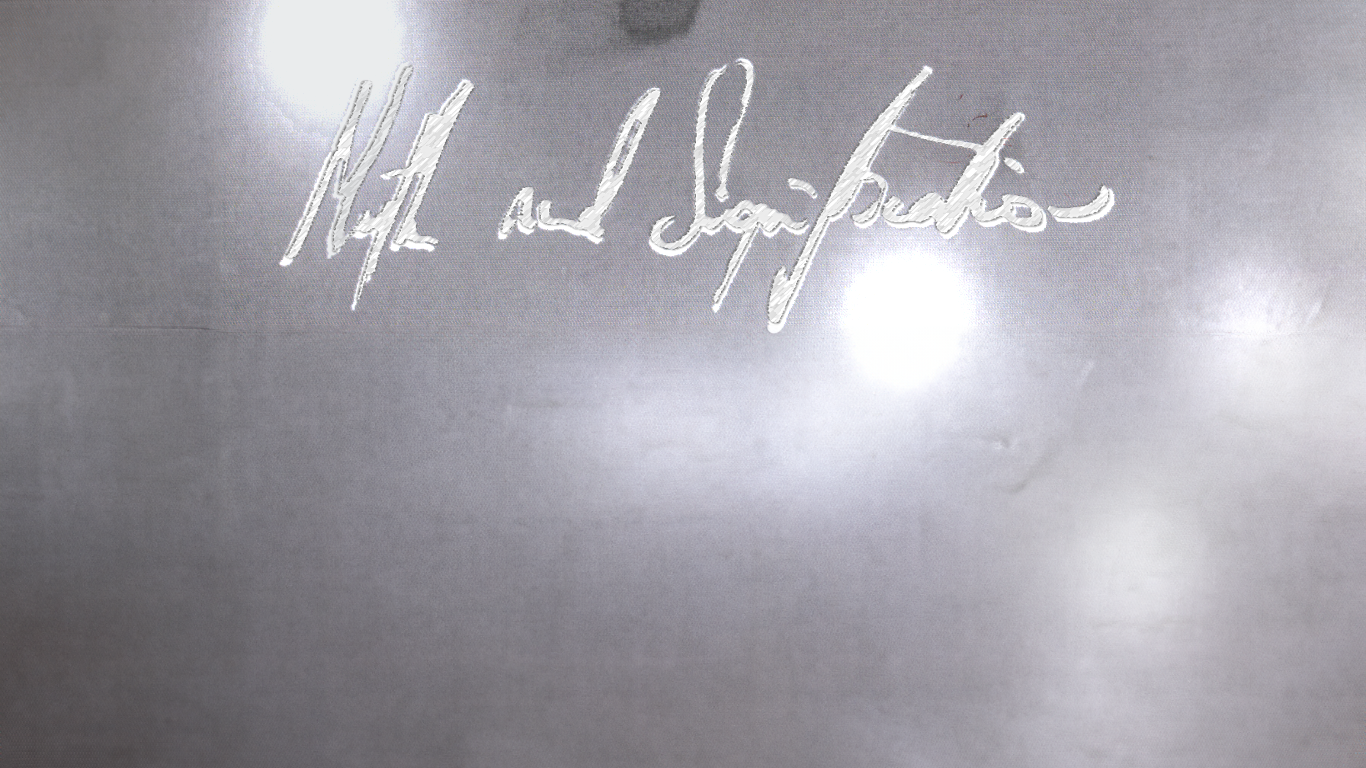 Myth and Signification